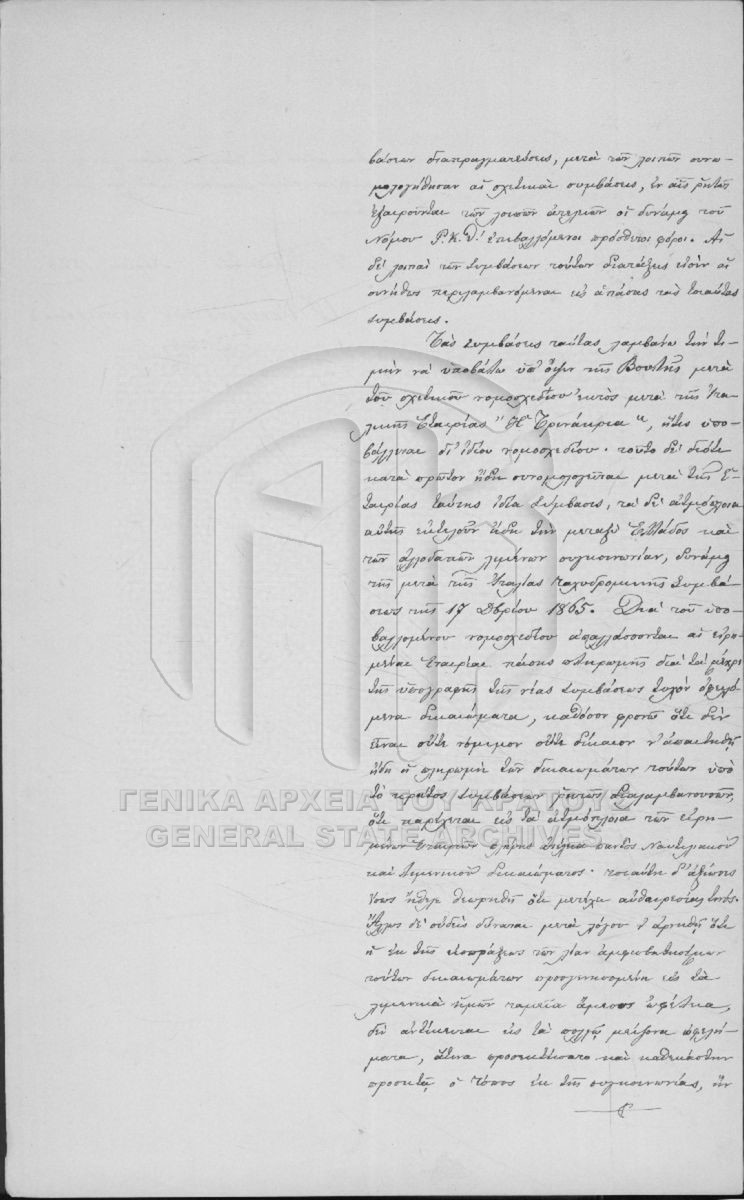 βάσεων διαπραγματεύσεις, μετὰ τῶν λοιπῶν συνω-
μολογήθησαν αἱ σχετικαὶ συμβάσεις, ἐν αἷς ῥητῶς
ἐξαιροῦνται τῶν λοιπῶν ἀτελειῶν οἱ δυνάμει τοῦ
Νόμου Ρ.Κ.Δ'. ἐπιβαλλόμενοι πρόσθετοι φόροι. Αἱ
δὲ λοιπαὶ τῶν συμβάσεων τούτων διατάξεις εἰσὶν αἱ
συνήθως περιλαμβανόμεναι εἰς ἁπάσας τὰς τοιαύτας
συμβάσεις.
Τὰς συμβάσεις ταύτας λαμβάνω τὴν τι-
μὴν νὰ ὑποβάλω ὑπ' ὄψιν τῆς Βουλῆς μετὰ
τοῦ σχετικοῦ νομοσχεδίου ἐκτὸς μετὰ τῆς Ἰτα-
λικῆς Ἑταιρίας "Ἡ Τρινάκρια", ἥτις ὑπο-
βάλλεται δι' ἰδίου νομοσχεδίου· τοῦτο δὲ διότι
κατὰ πρῶτον ἤδη συνομολογεῖται μετὰ τῆς Ἑ-
ταιρίας ταύτης ἰδία σύμβασις, τὰ δὲ ἀτμόπλοια
αὐτῆς ἐκτελοῦν ἤδη τὴν μεταξὺ Ἑλλάδος καὶ
τῶν ἀλλοδαπῶν λιμένων συγκοινωνίαν, δυνάμει
τῆς μετὰ τῆς Ἰταλίας ταχυδρομικῆς συμβά-
σεως τῆς 17 Δβρίου 1865. Διὰ τοῦ ὑπο-
βαλλομένου νομοσχεδίου ἀπαλλάσσονται αἱ εἰρη-
μέναι Ἑταιρίαι πάσης πληρωμῆς διὰ τὰ μέχρι
τῆς ὑπογραφῆς τῆς νέας συμβάσεως τυχὸν ὀφειλό-
μενα δικαιώματα, καθόσον φρονῶ ὅτι δὲν
εἶναι οὔτε νόμιμον οὔτε δίκαιον ν' ἀπαιτηθῇ
ἤδη ἡ πληρωμὴ τῶν δικαιωμάτων τούτων ὑπὸ
τὸ κράτος συμβάσεων ῥητῶς διαλαμβανουσῶν,
ὅτι παρέχεται εἰς τὰ ἀτμόπλοια τῶν εἰρη-
μένων Ἑταιριῶν πλήρης ἀτέλεια παντὸς Ναυτιλιακοῦ
καὶ Λιμενικοῦ δικαιώματος· τοιαύτη δ' ἀξίωσις
ἴσως ἤθελε θεωρηθῆ ὅτι μετέχει αὐθαιρεσίας τινός.
Ἄλλως δὲ οὐδεὶς δύναται μετὰ λόγου ν' ἀρνηθῇ ὅτι
ἡ ἐκ τῆς εἰσπράξεως τῶν λίαν ἀμφισβητησίμων
τούτων δικαιωμάτων προσγενησομένη εἰς τὰ
λιμενικὰ ἡμῶν ταμεῖα ἄμεσος ὠφέλεια,
δὲν ἀντίκειται εἰς τὰ πολλῷ μείζονα ὠφελή-
ματα, ἅτινα προσεκτήσατο καὶ καθεκάστην
προσκτᾶται ὁ τόπος ἐκ τῆς συγκοινωνίας, ἣν
ΓΕΝΙΚΑ ΑΡΧΕΙΑ ΤΟΥ ΚΡΑΤΟΥΣ
GENERAL STATE ARCHIVES